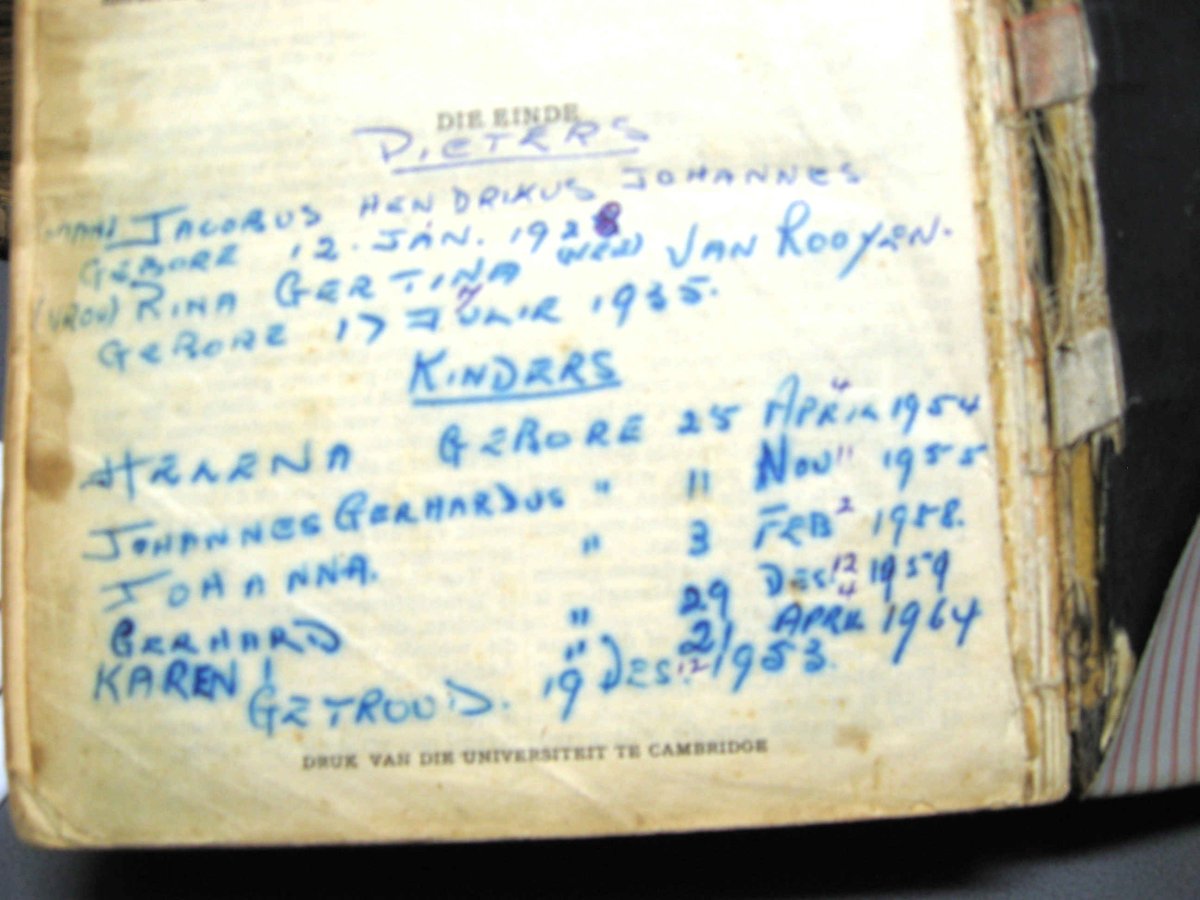 DIE EINDE
PIETERS
(MAN) JACOBUS HENDRIKUS JOHANNES
GEBORE 12. JAN. 1928
(VROU) RINA GERTINA WED VAN ROOYEN.
GEBORE 17 JULIE 1935.
KINDERS
HELENA GEBORE 25 APRIL 4 1954
JOHANNES GERHARDUS " 11 NOV 11 1955
JOHANNA. " 3 FEB 2 1958.
GERHARD " 29 DES. 12 1959
KAREN " 21 APRIL 4 1964
GETROUD. 19 DES. 12 1953.
DRUK VAN DIE UNIVERSITEIT TE CAMBRIDGE